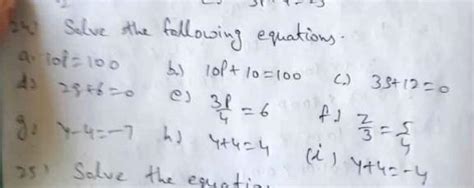 24) Solve the following equations.
a. 10p=100 b) 10p+10=100 c.) 3s+12=0
d) 2s+6=0 e) 3p/4 = 6 f) z/3 = 5/4
g) y-4=-7 h) y+4=4 (i) y+4=-4
25) Solve the equation